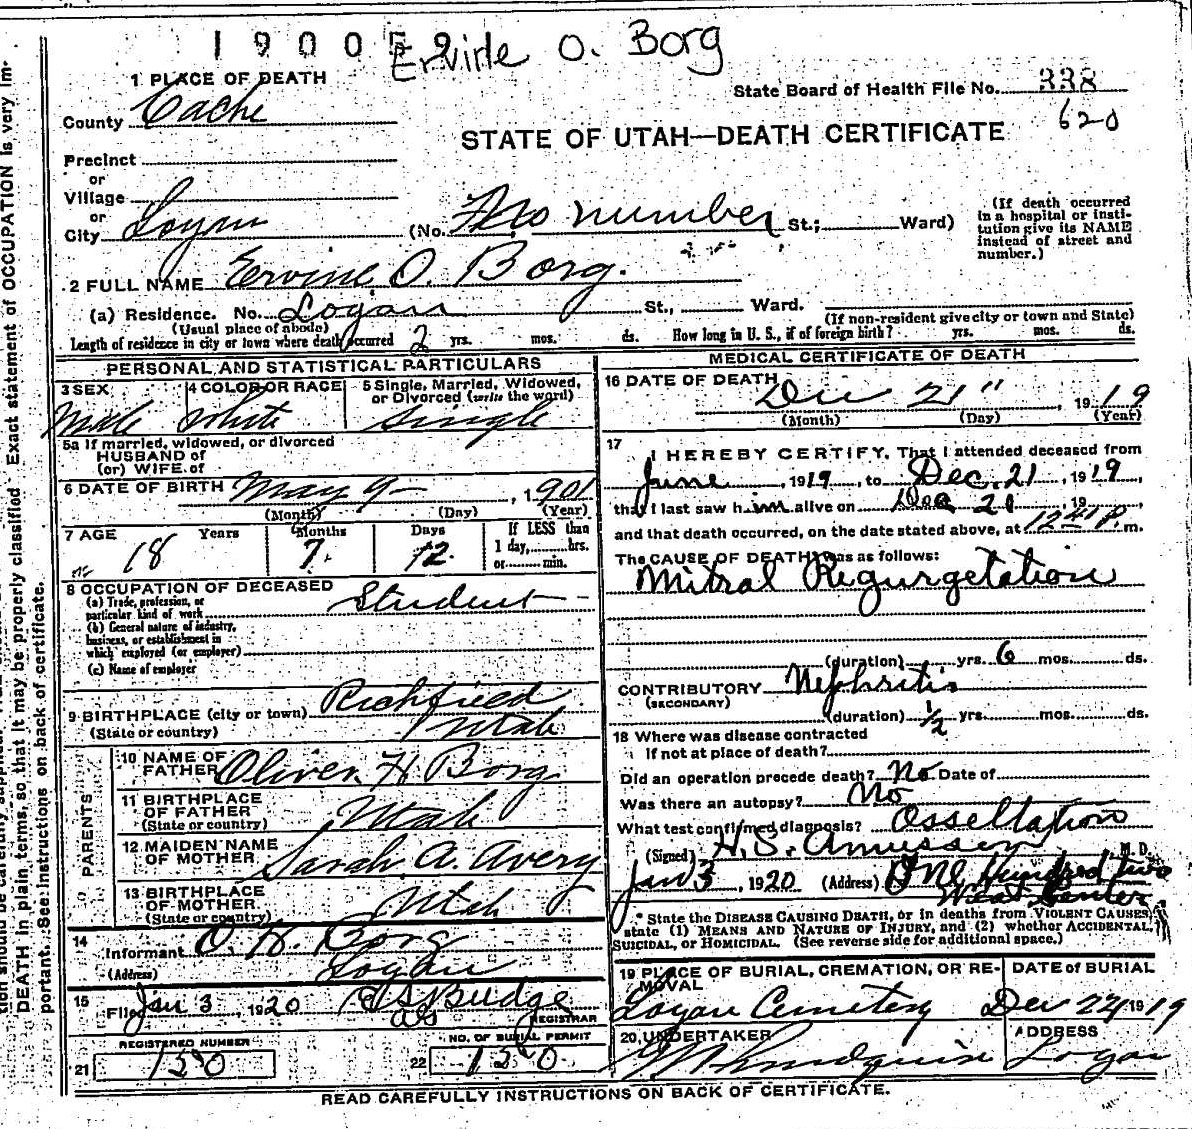 1 9 0 0 5 9 Ervine O. Borg
1 PLACE OF DEATH
State Board of Health File No. 338
620
County Cache
STATE OF UTAH—DEATH CERTIFICATE
Precinct
or
Village
or
City Logan (No. No number St.; Ward)
(If death occurred in a hospital or insti-
tution give its NAME instead of street and
number.)
2 FULL NAME Ervine O. Borg.
(a) Residence. No. Logan St., Ward.
(Usual place of abode) (If non-resident give city or town and State)
Length of residence in city or town where death occurred 2 yrs. mos. ds. How long in U. S., if of foreign birth? yrs. mos. ds.
PERSONAL AND STATISTICAL PARTICULARS
3 SEX 4 COLOR OR RACE 5 Single, Married, Widowed,
or Divorced (write the word)
Male White Single
5a If married, widowed, or divorced
HUSBAND of
(or) WIFE of
6 DATE OF BIRTH May 9 - , 1901
(Month) (Day) (Year)
7 AGE Years Months Days If LESS than
1 day, hrs.
or min.
18 7. 12.
8 OCCUPATION OF DECEASED
(a) Trade, profession, or
particular kind of work Student
(b) General nature of industry,
business, or establishment in
which employed (or employer)
(c) Name of employer
9 BIRTHPLACE (city or town) Richfield
(State or country) Utah
PARENTS
10 NAME OF
FATHER Oliver H Borg
11 BIRTHPLACE
OF FATHER Utah
(State or country)
12 MAIDEN NAME
OF MOTHER Sarah A. Avery
13 BIRTHPLACE
OF MOTHER Utah
(State or country)
14
Informant O. H. Borg
(Address) Logan
15
Filed Jan 3, 1920
REGISTRAR
REGISTERED NUMBER
21 150
NO. OF BURIAL PERMIT
22 150
MEDICAL CERTIFICATE OF DEATH
16 DATE OF DEATH Dec 21" , 1919
(Month) (Day) (Year)
17
I HEREBY CERTIFY, That I attended deceased from
June , 1919, to Dec. 21, 1919,
that I last saw him alive on Dec 21, 19
and that death occurred, on the date stated above, at P. m.
The CAUSE OF DEATH was as follows:
Mitral Regurgetation
(duration) yrs. 6 mos. ds.
CONTRIBUTORY Nephritis
(SECONDARY)
(duration) 1/2 yrs. mos. ds.
18 Where was disease contracted
If not at place of death?
Did an operation precede death? No Date of
Was there an autopsy? No
What test confirmed diagnosis? Osseltation
(Signed) H. S. Amussen M. D.
Jan 3, 1920 (Address) One Hundred two
West Center.
* State the DISEASE CAUSING DEATH, or in deaths from VIOLENT CAUSES,
state (1) MEANS AND NATURE OF INJURY, and (2) whether ACCIDENTAL,
SUICIDAL, or HOMICIDAL. (See reverse side for additional space.)
19 PLACE OF BURIAL, CREMATION, OR RE-
MOVAL
DATE of BURIAL
Logan Cemetery Dec 24 1919
20 UNDERTAKER ADDRESS
Logan
READ CAREFULLY INSTRUCTIONS ON BACK OF CERTIFICATE.
DEATH in plain terms, so that it may be properly classified. Exact statement of OCCUPATION is very im-
portant. See instructions on back of certificate.